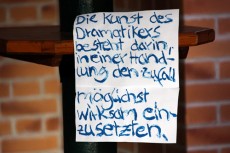 Die Kunst des
Dramatikers
besteht darin,
in einer Hand-
lung den Zufall
möglichst
wirksam ein-
zusetzten.